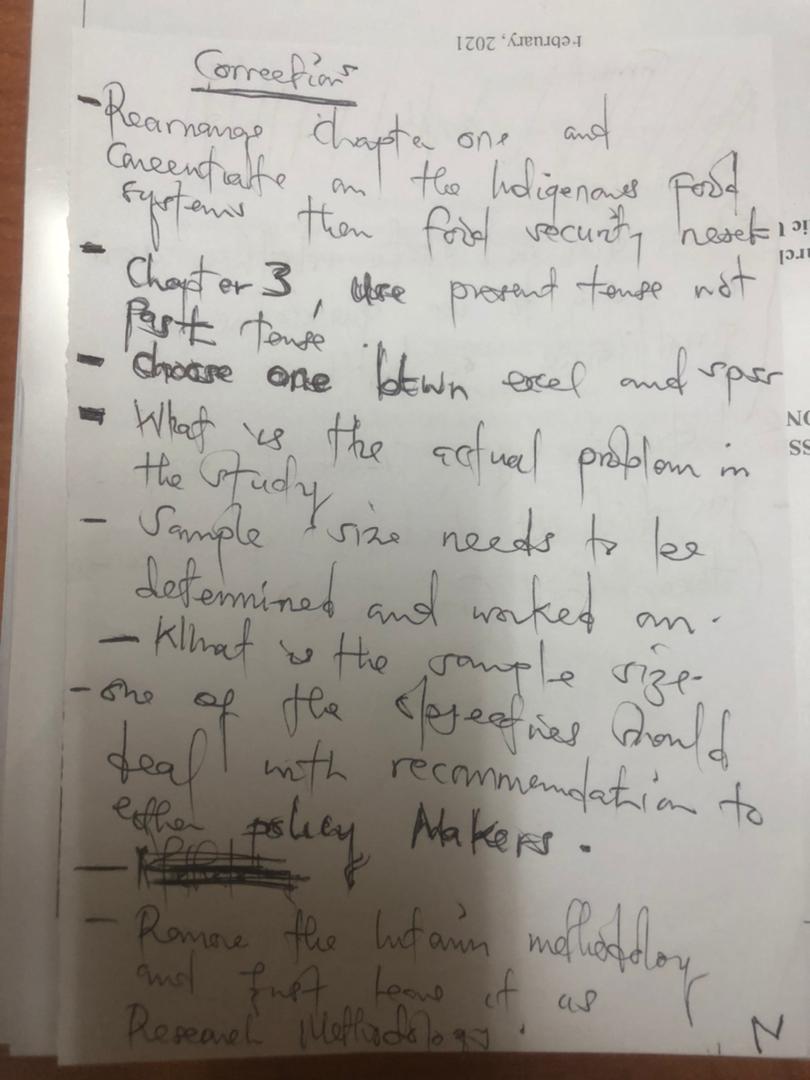 February, 2021
Corrections
- Rearrange chapter one and
Concentrate on the Indigenous food
systems then food security next
- Chapter 3, use present tense not
past tense.
- choose one btwn excel and spss
- What is the actual problem in
the study
- Sample size needs to be
determined and worked on.
- What is the sample size-
- one of the objectives should
deal with recommendation to
either policy Makers.
- Remove the methodology
and just leave it as
Research Methodology.
N